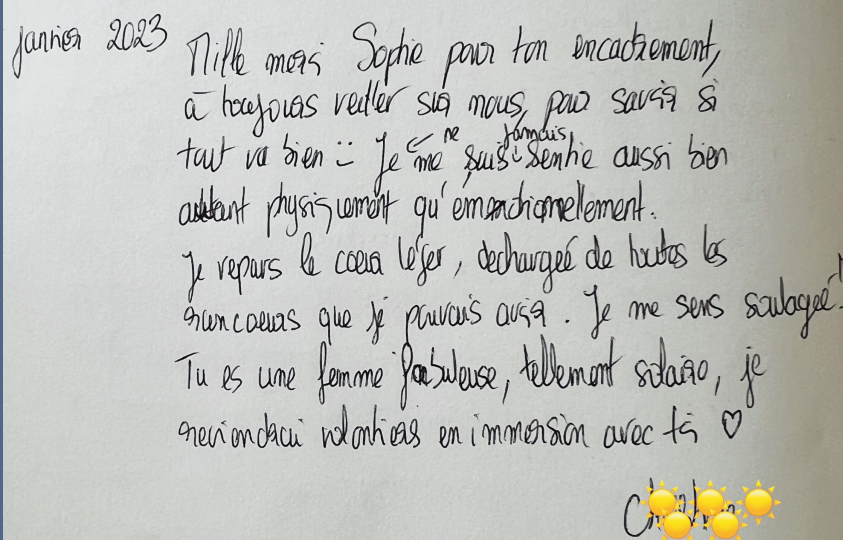 janvier 2023
Mille merci Sophie pour ton encadrement,
à toujours veiller sur nous, pour savoir si
tout va bien :) Je ne me suis jamais sentie aussi bien
autant physiquement qu'émotionnellement.
Je repars le coeur léger, dechargeé de toutes les
rancoeurs que je pouvais avoir. Je me sens soulageé!
Tu es une femme fabuleuse, tellement solaire, je
reviendrai volontiers en immersion avec toi ♡